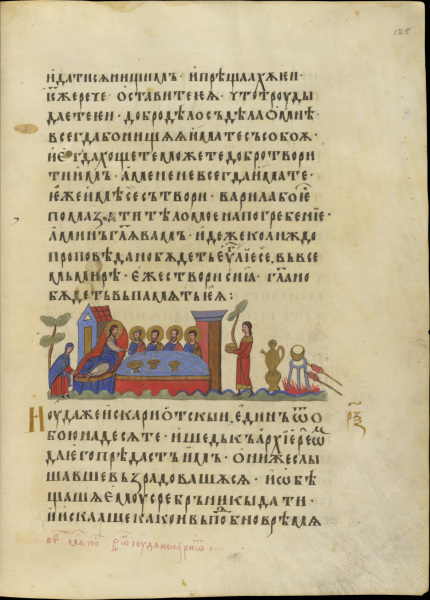 125
и датисѧ нищимъ · и прѣщахѫ еи ·
і҃с же рече · оставите ѧ · что троуды
даете еи · добро дѣло съдѣла ѡ мнѣ ·
всегда бо нищѫѧ имате съ собоѫ ·
и егда хощете можете добро твори
ти имъ · а мене не всегда имате ·
еже имѣ се сътвори · варила бо ес҃
помазати тѣло мое на погребение ·
аминъ гл҃ѧ вамъ · идеже колиждо
проповѣдано бѫдетъ еѵ҃лие се, въ все
мь мирѣ · еже сътвори сиꙗ · гл҃ано
бѫдетъ въ памѧть еѧ :
Иоуда же искариѡтскыи, единъ ѿ ѡ
боюнадесѧте · и шедъ къ архїереѡⷨ
да і его прѣдастъ имъ · они же слы
шавше възрадовашѧсѧ · и ѡбѣ
щашѧ емоу сребръникы дати ·
и искааше како и въ поⷣбно врѣмѧ